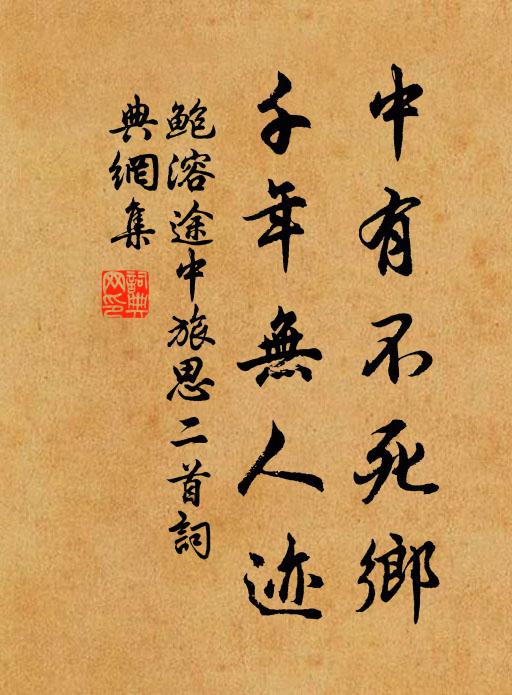 中有不死鄉
千年無人迹
鮑溶途中旅思二首詞
典網集
詞典網印